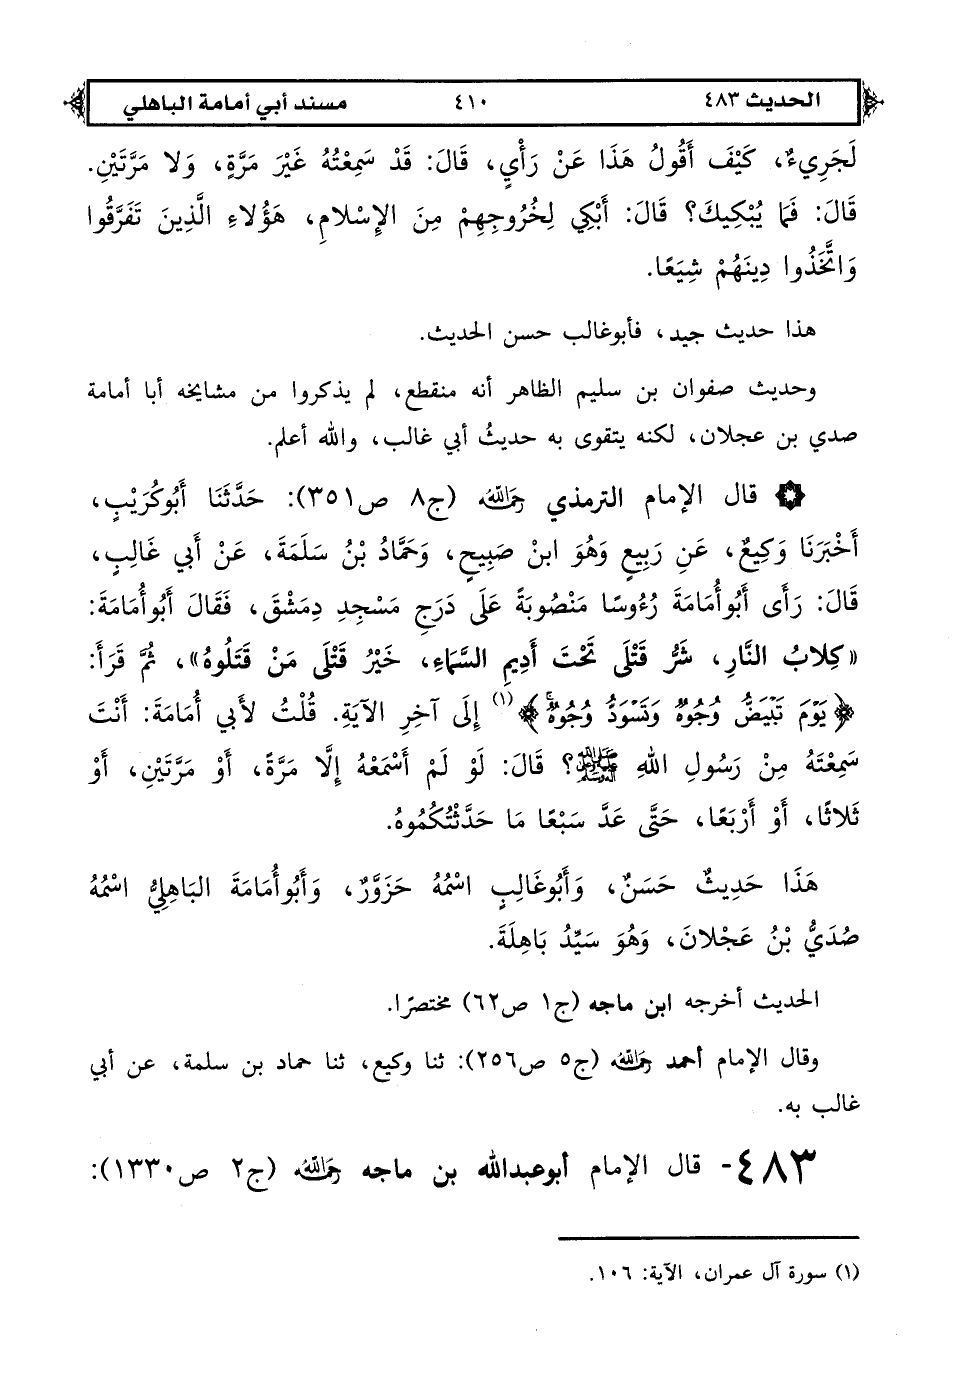 الحديث ٤٨٣ ٤١٠ مسند أبي أمامة الباهلي
لَجَرِيءٌ، كَيْفَ أَقُولُ هَذَا عَنْ رَأْيٍ، قَالَ: قَدْ سَمِعْتُهُ غَيْرَ مَرَّةٍ، وَلا مَرَّتَيْنِ.
قَالَ: فَمَا يُبْكِيكَ؟ قَالَ: أَبْكِي لِخُرُوجِهِمْ مِنَ الإِسْلامِ، هَؤُلاءِ الَّذِينَ تَفَرَّقُوا
وَاتَّخَذُوا دِينَهُمْ شِيَعًا.
هذا حديث جيد، فأبوغالب حسن الحديث.
وحديث صفوان بن سليم الظاهر أنه منقطع، لم يذكروا من مشايخه أبا أمامة
صدي بن عجلان، لكنه يتقوى به حديثُ أبي غالب، والله أعلم.
قال الإمام الترمذي رحمه الله (ج٨ ص٣٥١): حَدَّثَنَا أَبُوكُرَيْبٍ،
أَخْبَرَنَا وَكِيعٌ، عَنِ رَبِيعٍ وَهُوَ ابنْ صَبِيحٍ، وَحَمَّادُ بْنُ سَلَمَةَ، عَنْ أَبِي غَالِبٍ،
قَالَ: رَأَى أَبُوأُمَامَةَ رُءُوسًا مَنْصُوبَةً عَلَى دَرَجِ مَسْجِدِ دِمَشْقَ، فَقَالَ أَبُوأُمَامَةَ:
«كِلابُ النَّارِ، شَرُّ قَتْلَى تَحْتَ أَدِيمِ السَّمَاءِ، خَيْرُ قَتْلَى مَنْ قَتَلُوهُ»، ثُمَّ قَرَأَ:
﴿يَوْمَ تَبْيَضُّ وُجُوهٌ وَتَسْوَدُّ وُجُوهٌ﴾(١) إِلَى آخِرِ الآيَةِ. قُلْتُ لأَبِي أُمَامَةَ: أَنْتَ
سَمِعْتَهُ مِنْ رَسُولِ اللهِ ﷺ؟ قَالَ: لَوْ لَمْ أَسْمَعْهُ إِلَّا مَرَّةً، أَوْ مَرَّتَيْنِ، أَوْ
ثَلاثًا، أَوْ أَرْبَعًا، حَتَّى عَدَّ سَبْعًا مَا حَدَّثْتُكُمُوهُ.
هَذَا حَدِيثٌ حَسَنٌ، وَأَبُوغَالِبٍ اسْمُهُ حَزَوَّرٌ، وَأَبُوأُمَامَةَ البَاهِلِيُّ اسْمُهُ
صُدَيُّ بْنُ عَجْلانَ، وَهُوَ سَيِّدُ بَاهِلَةَ.
الحديث أخرجه ابن ماجه (ج١ ص٦٢) مختصرًا.
وقال الإمام أحمد رحمه الله (ج٥ ص٢٥٦): ثنا وكيع، ثنا حماد بن سلمة، عن أبي
غالب به.
٤٨٣- قال الإمام أبوعبدالله بن ماجه رحمه الله (ج٢ ص١٣٣٠):
(١) سورة آل عمران، الآية: ١٠٦.